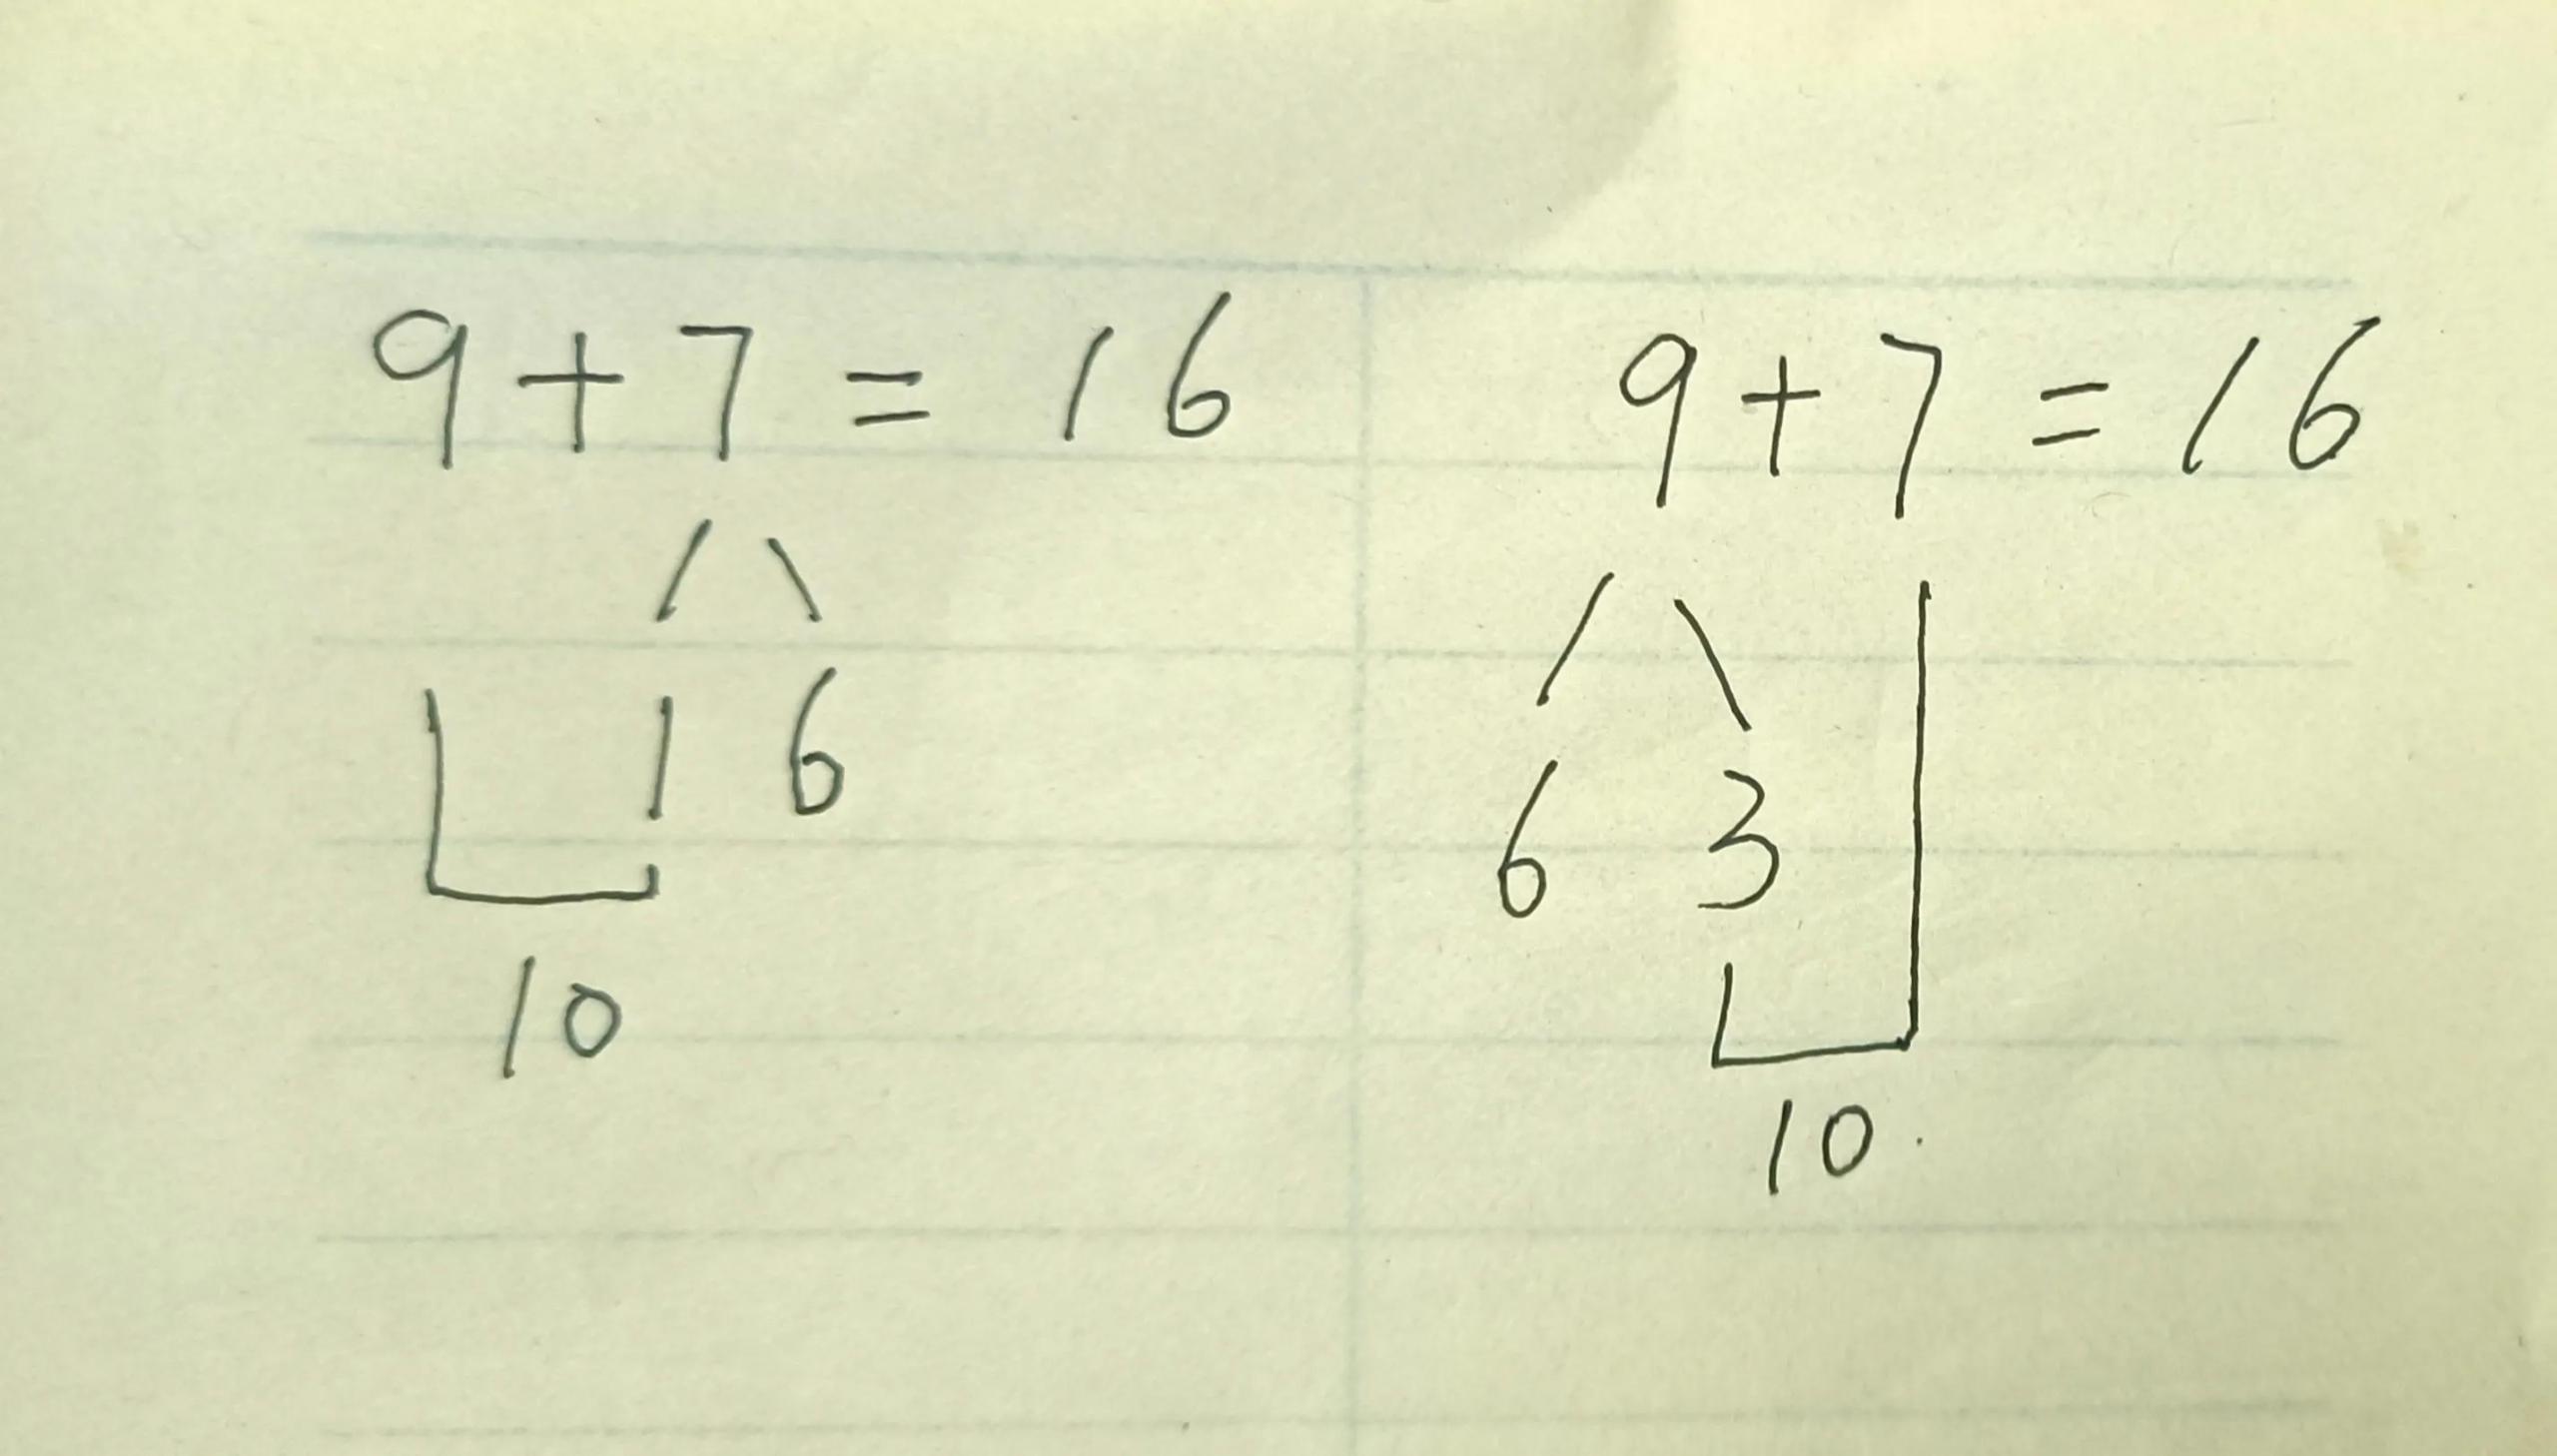 9+7=16
1 6
10
9+7=16
6 3
10